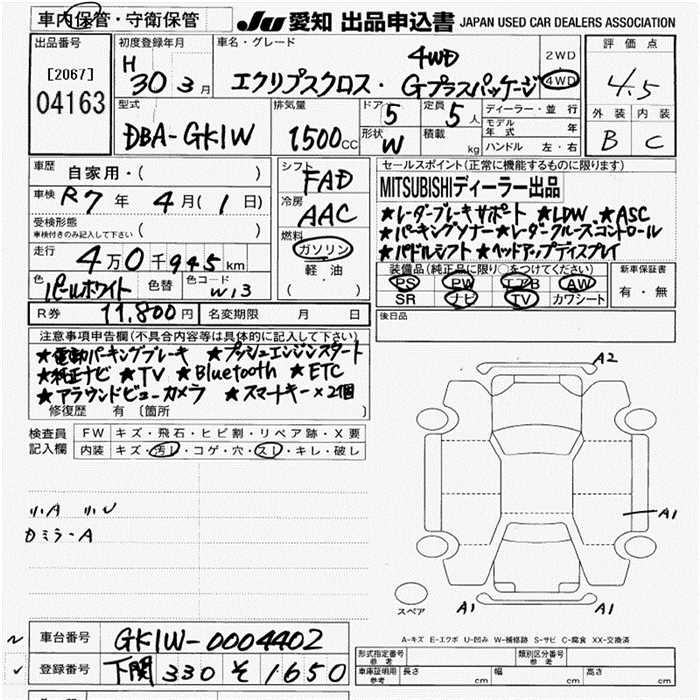 車内保管・守衛保管
JU 愛知 出品申込書 JAPAN USED CAR DEALERS ASSOCIATION
出品番号
[2067]
04163
初度登録年月
H 30 3月
車名・グレード
4WD
エクリプスクロス・Gプラスパッケージ
2WD
4WD
評価点
4.5
外装 内装
B C
型式
DBA-GK1W
排気量
1500cc
ドア 5
形状 W
定員 5人
積載 kg
ディーラー・並行
モデル年式 年
ハンドル 左・右
車歴
自家用・( )
車検 R7年 4月(1日)
受検形態
車検付きのみ記入して下さい ( )
走行 4万0千945km
色 パールホワイト 色替 色コード W13
シフト
FAD
冷房
AAC
燃料
ガソリン
軽油
( )
セールスポイント(正常に機能するものに限ります)
MITSUBISHIディーラー出品
★レーダーブレーキサポート ★LDW ★ASC
★パーキングソナー★レーダークルーズコントロール
★パドルシフト ★ヘッドアップディスプレイ
装備品(純正品に限り○をつけてください)
PS PW エアB AW
SR ナビ TV カワシート
新車保証書
有・無
R券 11,800円 名変期限 月 日
後日品
注意事項申告欄(不具合内容等は具体的に記入して下さい)
★電動パーキングブレーキ ★プッシュエンジンスタート
★純正ナビ ★TV ★Bluetooth ★ETC
★アラウンドビューカメラ ★スマートキー×2個
修復歴 有 〔箇所 〕
検査員記入欄
FW キズ・飛石・ヒビ割・リペア跡・X要
内装 キズ・汚レ・コゲ・穴・スレ・キレ・破レ
小A 小U
カミラ・A
A2
A1
A1 A1
スペア
A-キズ E-エクボ U-凹み W-補修跡 S-サビ C-腐食 XX-交換済
車台番号 GK1W-0004402
登録番号 下関 330 そ 1650
形式指定番号 参考
類別区分番号 参考
車庫証明用 参考 長さ cm 幅 cm 高さ cm